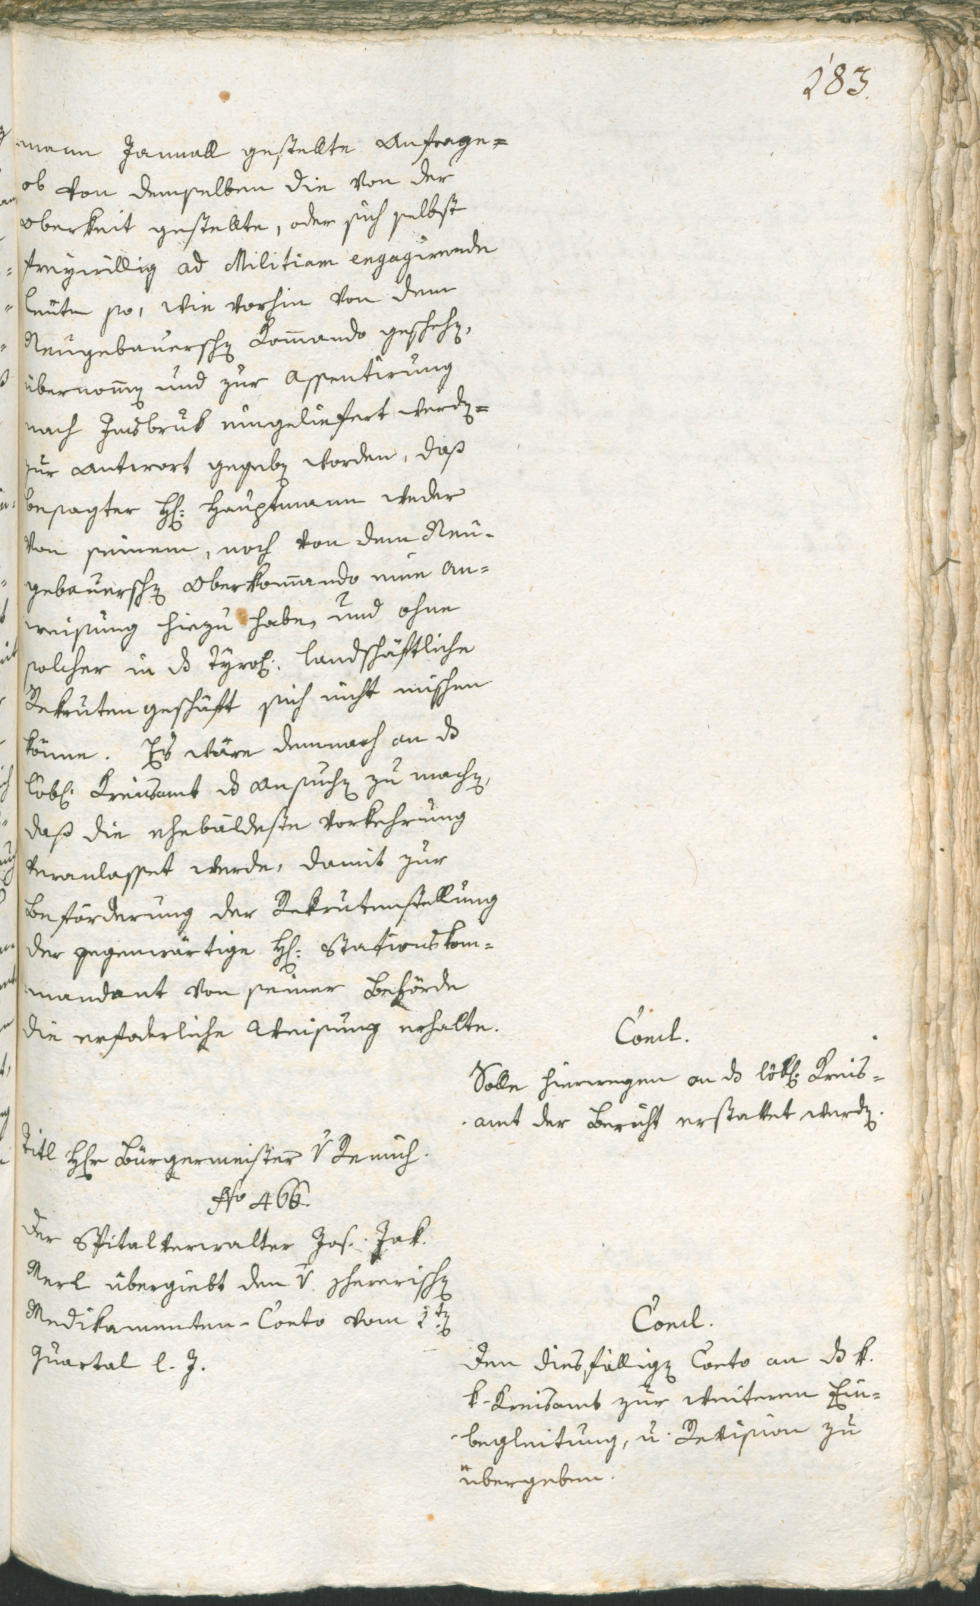 283.
mann Januall gestellte Anfrage=
ob von demselben die von der
Oberkeit gestellte, oder sich selbst
freywillig ad Militiam engagirende
Leute so, wie vorhin von dem
Neugebauersch[en] Ko[m]mando gescheh[en],
überno[mm][en] und zur Assentirung
nach Insbruk eingeliefert werd[en]=
zur Antwort gegeb[en] worden, daß
besagter H[err] Hauptmann weder
von seinem, noch von dem Neu=
gebauersch[en] Oberko[m]mando eine An=
weisung hiezu habe, und ohne
solcher in d[as] Tyrol: landschäftliche
Rekrutengeschäft sich nicht mischen
könne. Es wäre demnach an d[as]
löbl: Kreisamt d[as] Ansuch[en] zu mach[en],
daß die ehebäldeste Vorkehrung
veranlasset werde, damit zur
Beförderung der Rekrutenstellung
der gegenwärtige H[err] Stationskom=
mandant von seiner Behörde
die erfoderliche Weisung erhalte.
Concl.
Solle hierwegen an d[as] löbl: Kreis=
amt der Bericht erstattet werd[en].
Titl H[err] Bürgermeister v Remich.
No 466.
Der Spitalverwalter Jos. Jak.
Merl übergiebt den v. schererisch[en]
Medikamenten-Conto vom 2t[en]
Quartal l. J.
Concl.
Den diesfällig[en] Conto an d[as] k.
k. Kreisamt zur weiteren Ein=
begleitung, u. Revision zu
übergeben.